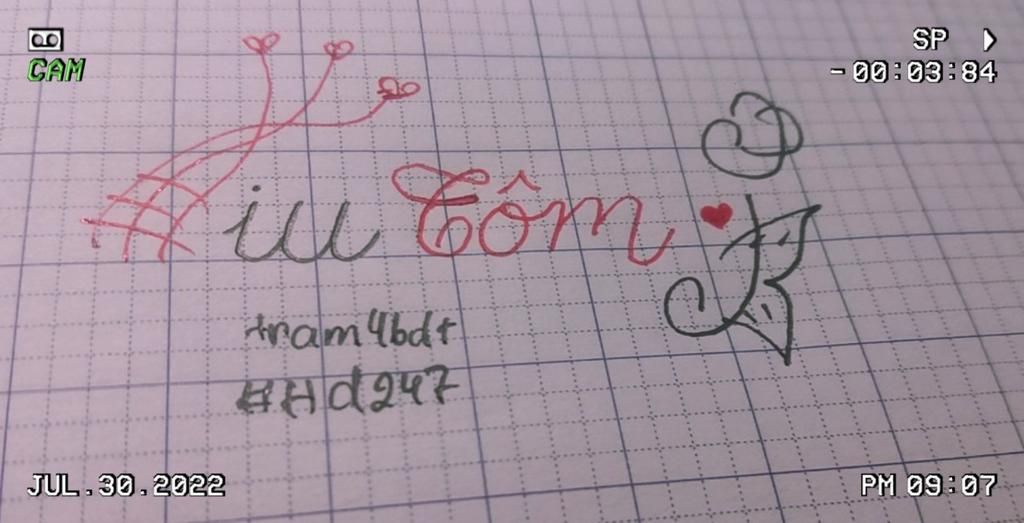 SP
CAM
-00:03:84
iu Tôm
tram4bdt
#Hd247
JUL.30.2022
PM 09:07